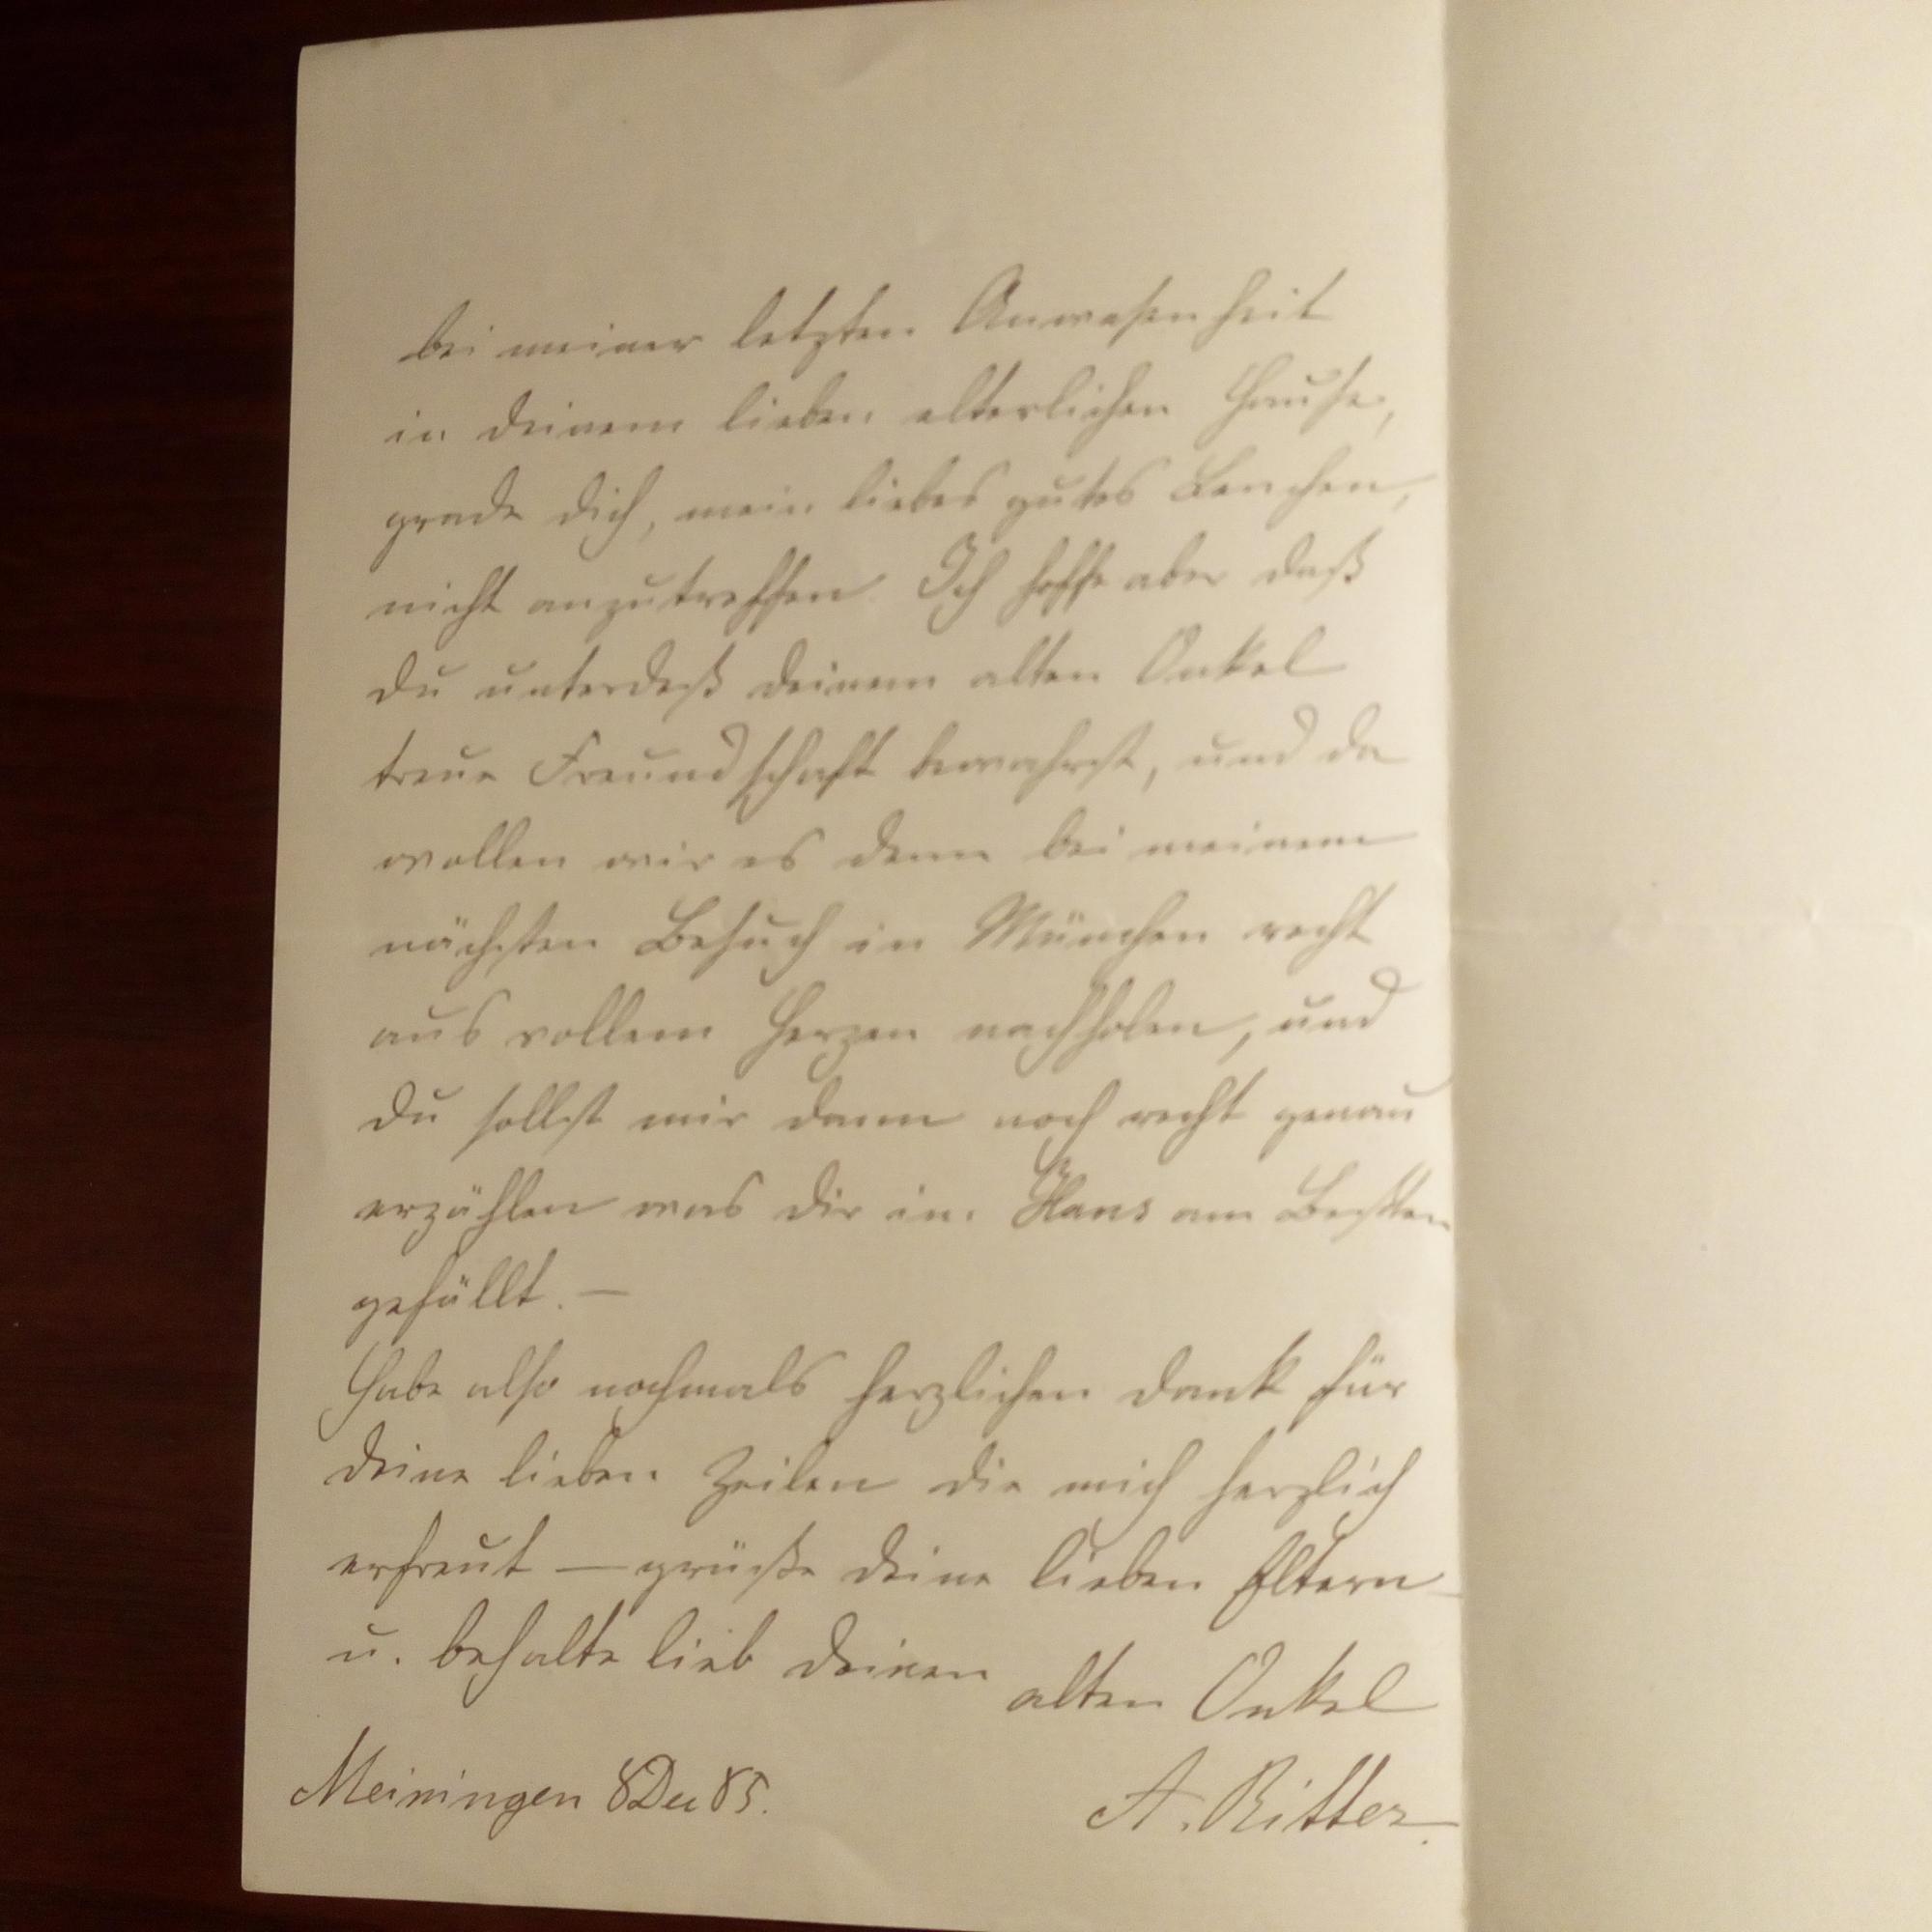 bei meiner letzten Anwesenheit
in deinem lieben elterlichen Hause,
grade dich, mein liebes gutes Lenchen,
nicht anzutreffen. Ich hoffe aber daß
du unterdeß deinem alten Onkel
treue Freundschaft bewahrst, und da
wollen wir es denn bei meinem
nächsten Besuch in München recht
aus vollem Herzen nachholen, und
du sollst mir dann noch recht genau
erzählen was dir im Hans am Besten
gefällt. —
Habe also nochmals herzlichen Dank für
deine lieben Zeilen die mich herzlich
erfreut — grüße deine lieben Eltern
u. behalte lieb deinen
alten Onkel
Meiningen 8 Dec 85.
A. Ritter.